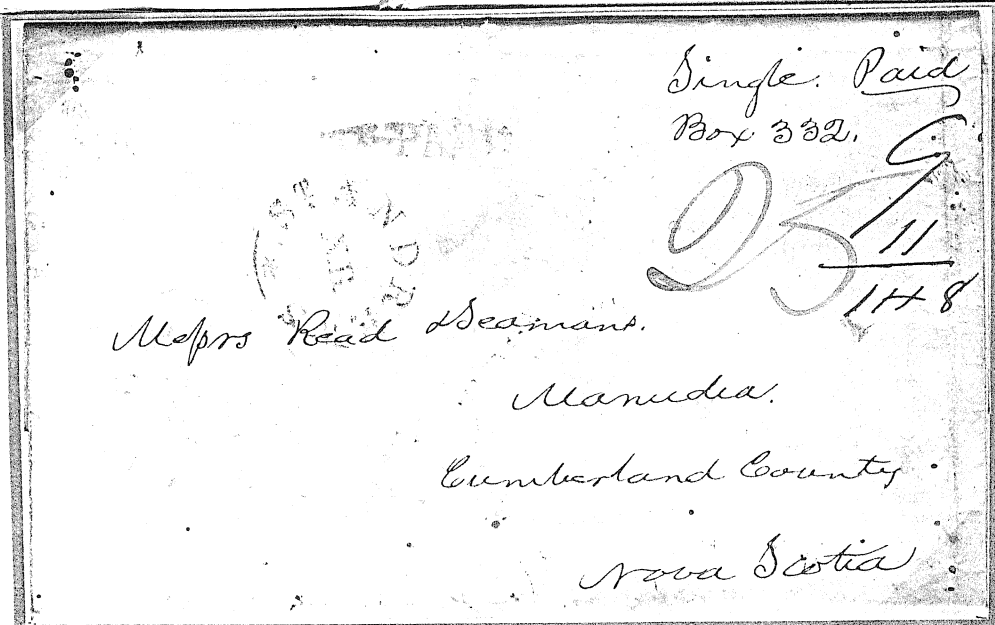 Single. Paid
Box 332.
9
25
11
1H 8
ST ANDR
Messrs Read Seamans.
Manudia.
Cumberland County
Nova Scotia